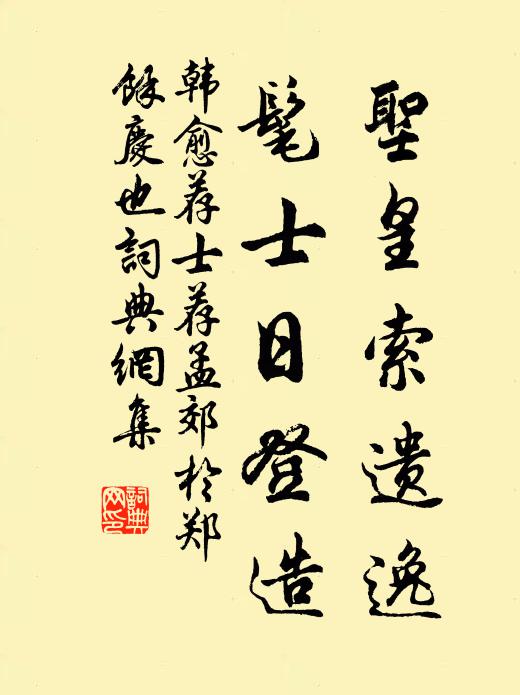 聖皇索遗逸
髦士日登造
韩愈荐士荐孟郊於郑
餘慶也詞典網集
詞典網印